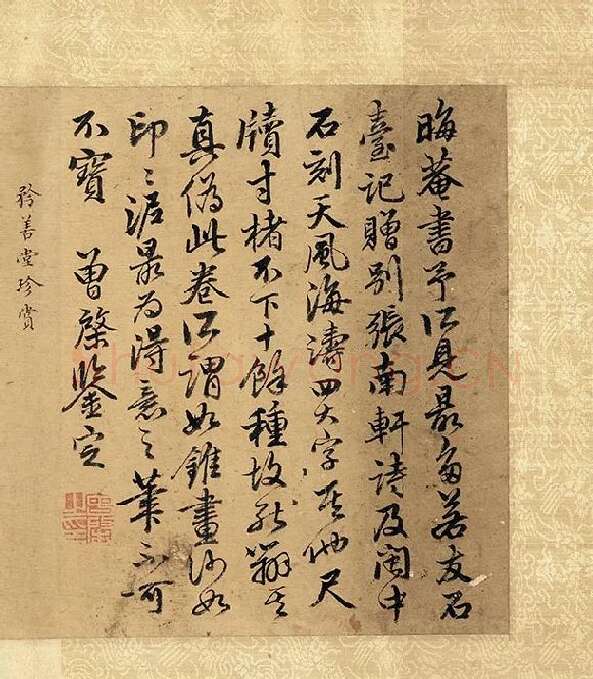 晦菴書予所見最多若友石
臺記贈別張南軒詩及閩中
石刻天風海濤四大字其他尺
牘寸楮不下十餘種故能辨其
真偽此卷所謂如錐畫沙如
印〻泥最為得意之筆不可
不寶 曾棨鑒定
矜善堂珍賞